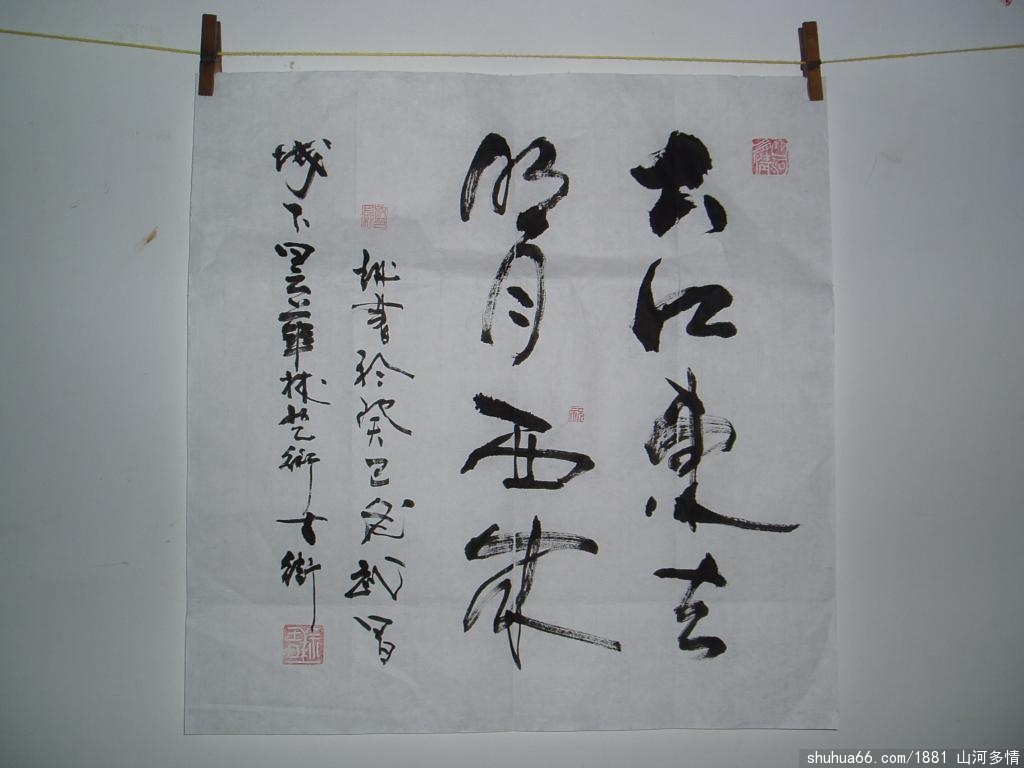 大江東去
明月西來
書於癸巳武昌
城下曇華林艺術古街
shuhua66.com/1881 山河多情